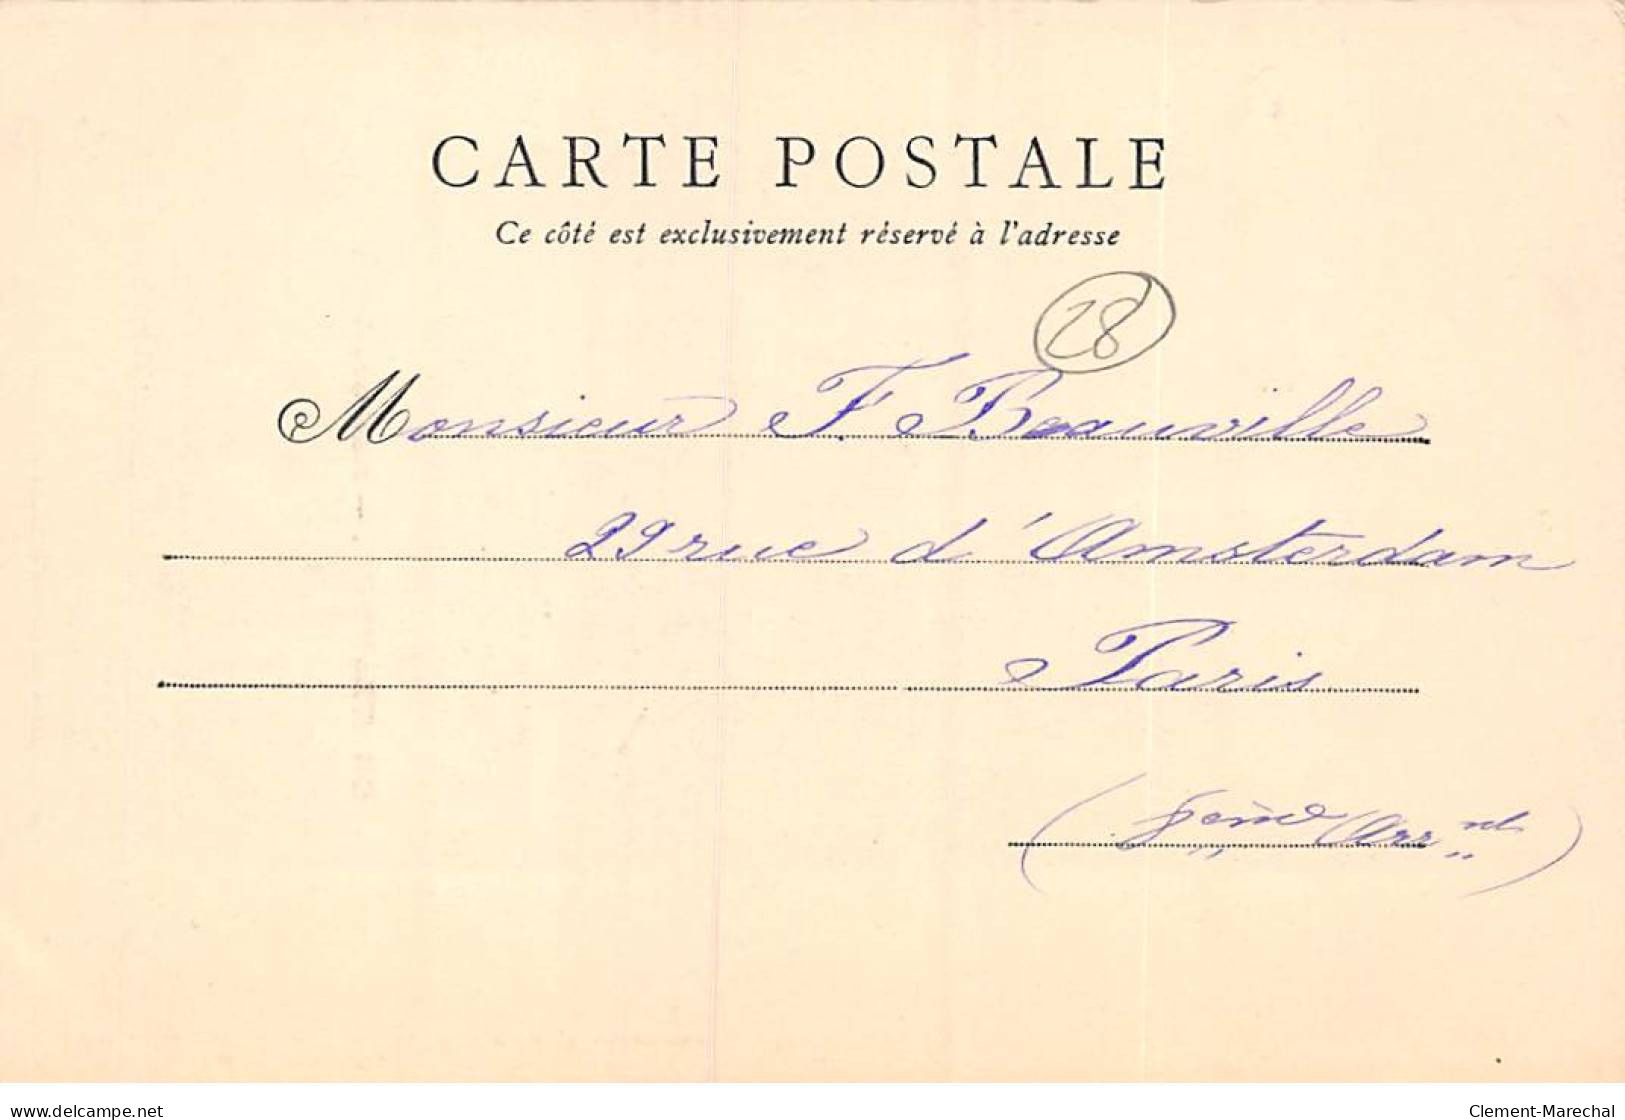 CARTE POSTALE
Ce côté est exclusivement réservé à l'adresse
28
Monsieur F. Beauville
29 rue d'Amsterdam
Paris
(8ème Arrnt)
www.delcampe.net
Clement-Marechal